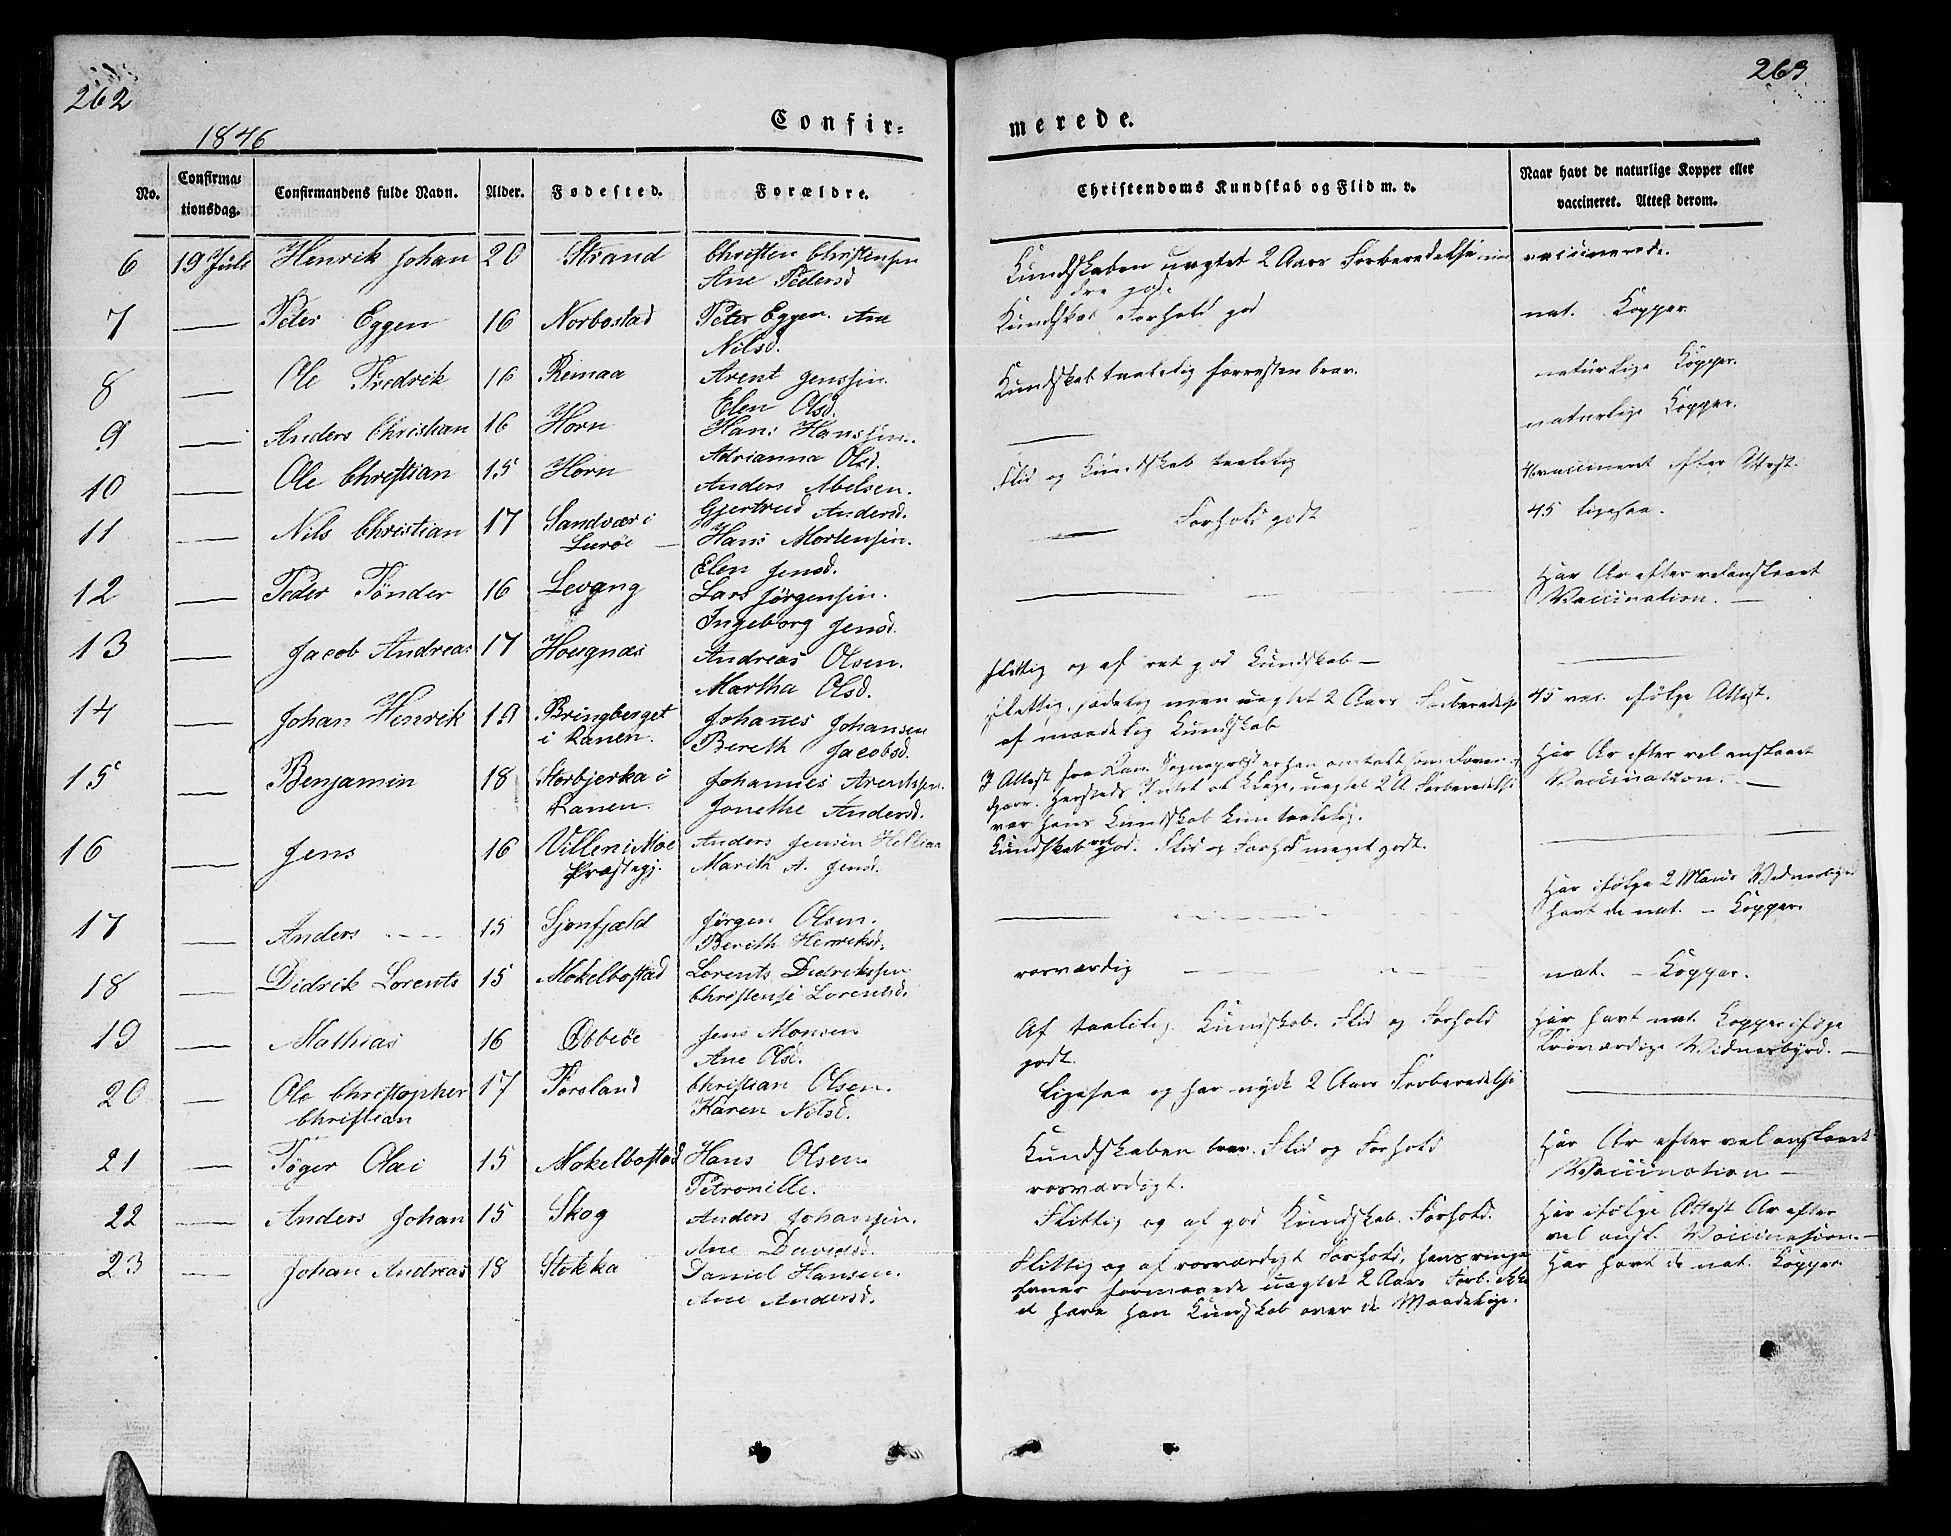 262
263
1846
Confir=
merede.
No.
Confirma-
tionsdag.
Confirmandens fulde Navn.
Alder.
Fødested.
Forældre.
Christendoms Kundskab og Flid m. v.
Naar havt de naturlige Kopper eller
vaccineret. Attest derom.
6 19 Juli Henrik Johan 20 Strand Christen Christensen
Ane Pedersd
Kundskaben uagtet 2 Aars Forberedelse min
dre god.
vaccinerede.
7 Peter Eggen 16 Norbostad Peter Eggen. Ane
Nilsd.
Kundskab Forhold god
nat. Kopper
8 Ole Fredrik 16 Remaa Arent Jenssen.
Elen Olsd.
Kundskab taalelig forresten brav.
naturlige Kopper.
9 Anders Christian 16 Horn Hans Hanssen.
Adrianna Olsd.
naturlige Kopper.
10 Ole Christian 15 Horn Anders Abelsen.
Gjertrud Andersd.
Flid og Kundskab taalelig
vaccineret efter Attest.
11 Nils Christian 17 Sandvær i
Lurøe
Hans Mortensen.
Elen Jensd.
Forhold godt
45 ligesaa.
12 Peder Tønder 16 Levang Lars Jørgensen.
Ingeborg Jensd.
Har Ar efter velanstaaet
Vaccination.
13 Jacob Andreas 17 Hougnæs Andreas Olsen.
Martha Olsd.
flittig og af ret god Kundskab
14 Johan Henrik 19 Bringberget
i Ranen.
Johanes Johansen
Berith Jacobsd.
flittig, sædelig men uagtet 2 Aars Forberedelse
af maadelig Kundskab
45 vac. ifølge Attest.
15 Benjamin 18 Storbjerka i
Ranen.
Johannes Arentssen.
Jonethe Andersd.
I Attest fra Sognepræst er han omtalt som
uagtet 2 A Forberedelse
var hans Kundskab kun taalelig.
Har Ar efter vel anstaaet
Vaccination.
16 Jens 16 Villen i Moe
Præstegj.
Anders Jensen
Marith A. Jensd.
Kundskab vel god. Flid og Forhold meget godt.
17 Anders 15 Sjonfjæld Jørgen Olsen.
Berith Henriksd.
Har ifølge 2 Mænds Vidnesbyrd
havt de nat. Kopper.
18 Didrik Lorents 15 Mokelbostad Lorents Didrikssen
Christense Lorentsd.
rosværdig
nat. Kopper.
19 Mathias 16 Æbbeøe Jens Monsen
Ane Olsd.
Af taalelig Kundskab. Flid og Forhold
godt.
Har havt nat. Kopper ifølge
troværdige Vidnesbyrd.
20 Ole Christopher
Christian
17 Forsland Christian Olsen.
Karen Nilsd.
Ligesaa og har nydt 2 Aars Forberedelse
21 Tøger Olai 15 Mokelbostad Hans Olsen
Petronille.
Kundskaben brav. Flid og Forhold
rosværdigt.
Har Ar efter vel anstaaet
Vaccination
22 Anders Johan 15 Skog Anders Johansen.
Ane Davidsd.
Flittig og af god Kundskab. Forhold.
Har ifølge Attest Ar efter
vel anst. Vaccination.
23 Johan Andreas 18 Stokka Daniel Hansen.
Ane Andersd.
Flittig og af rosværdigt Forhold, hans ringe
Evner formaaede uagtet 2 Aars Forb. ikke
at hæve han Kundskab over de Maadelige.
Har havt de nat. Kopper